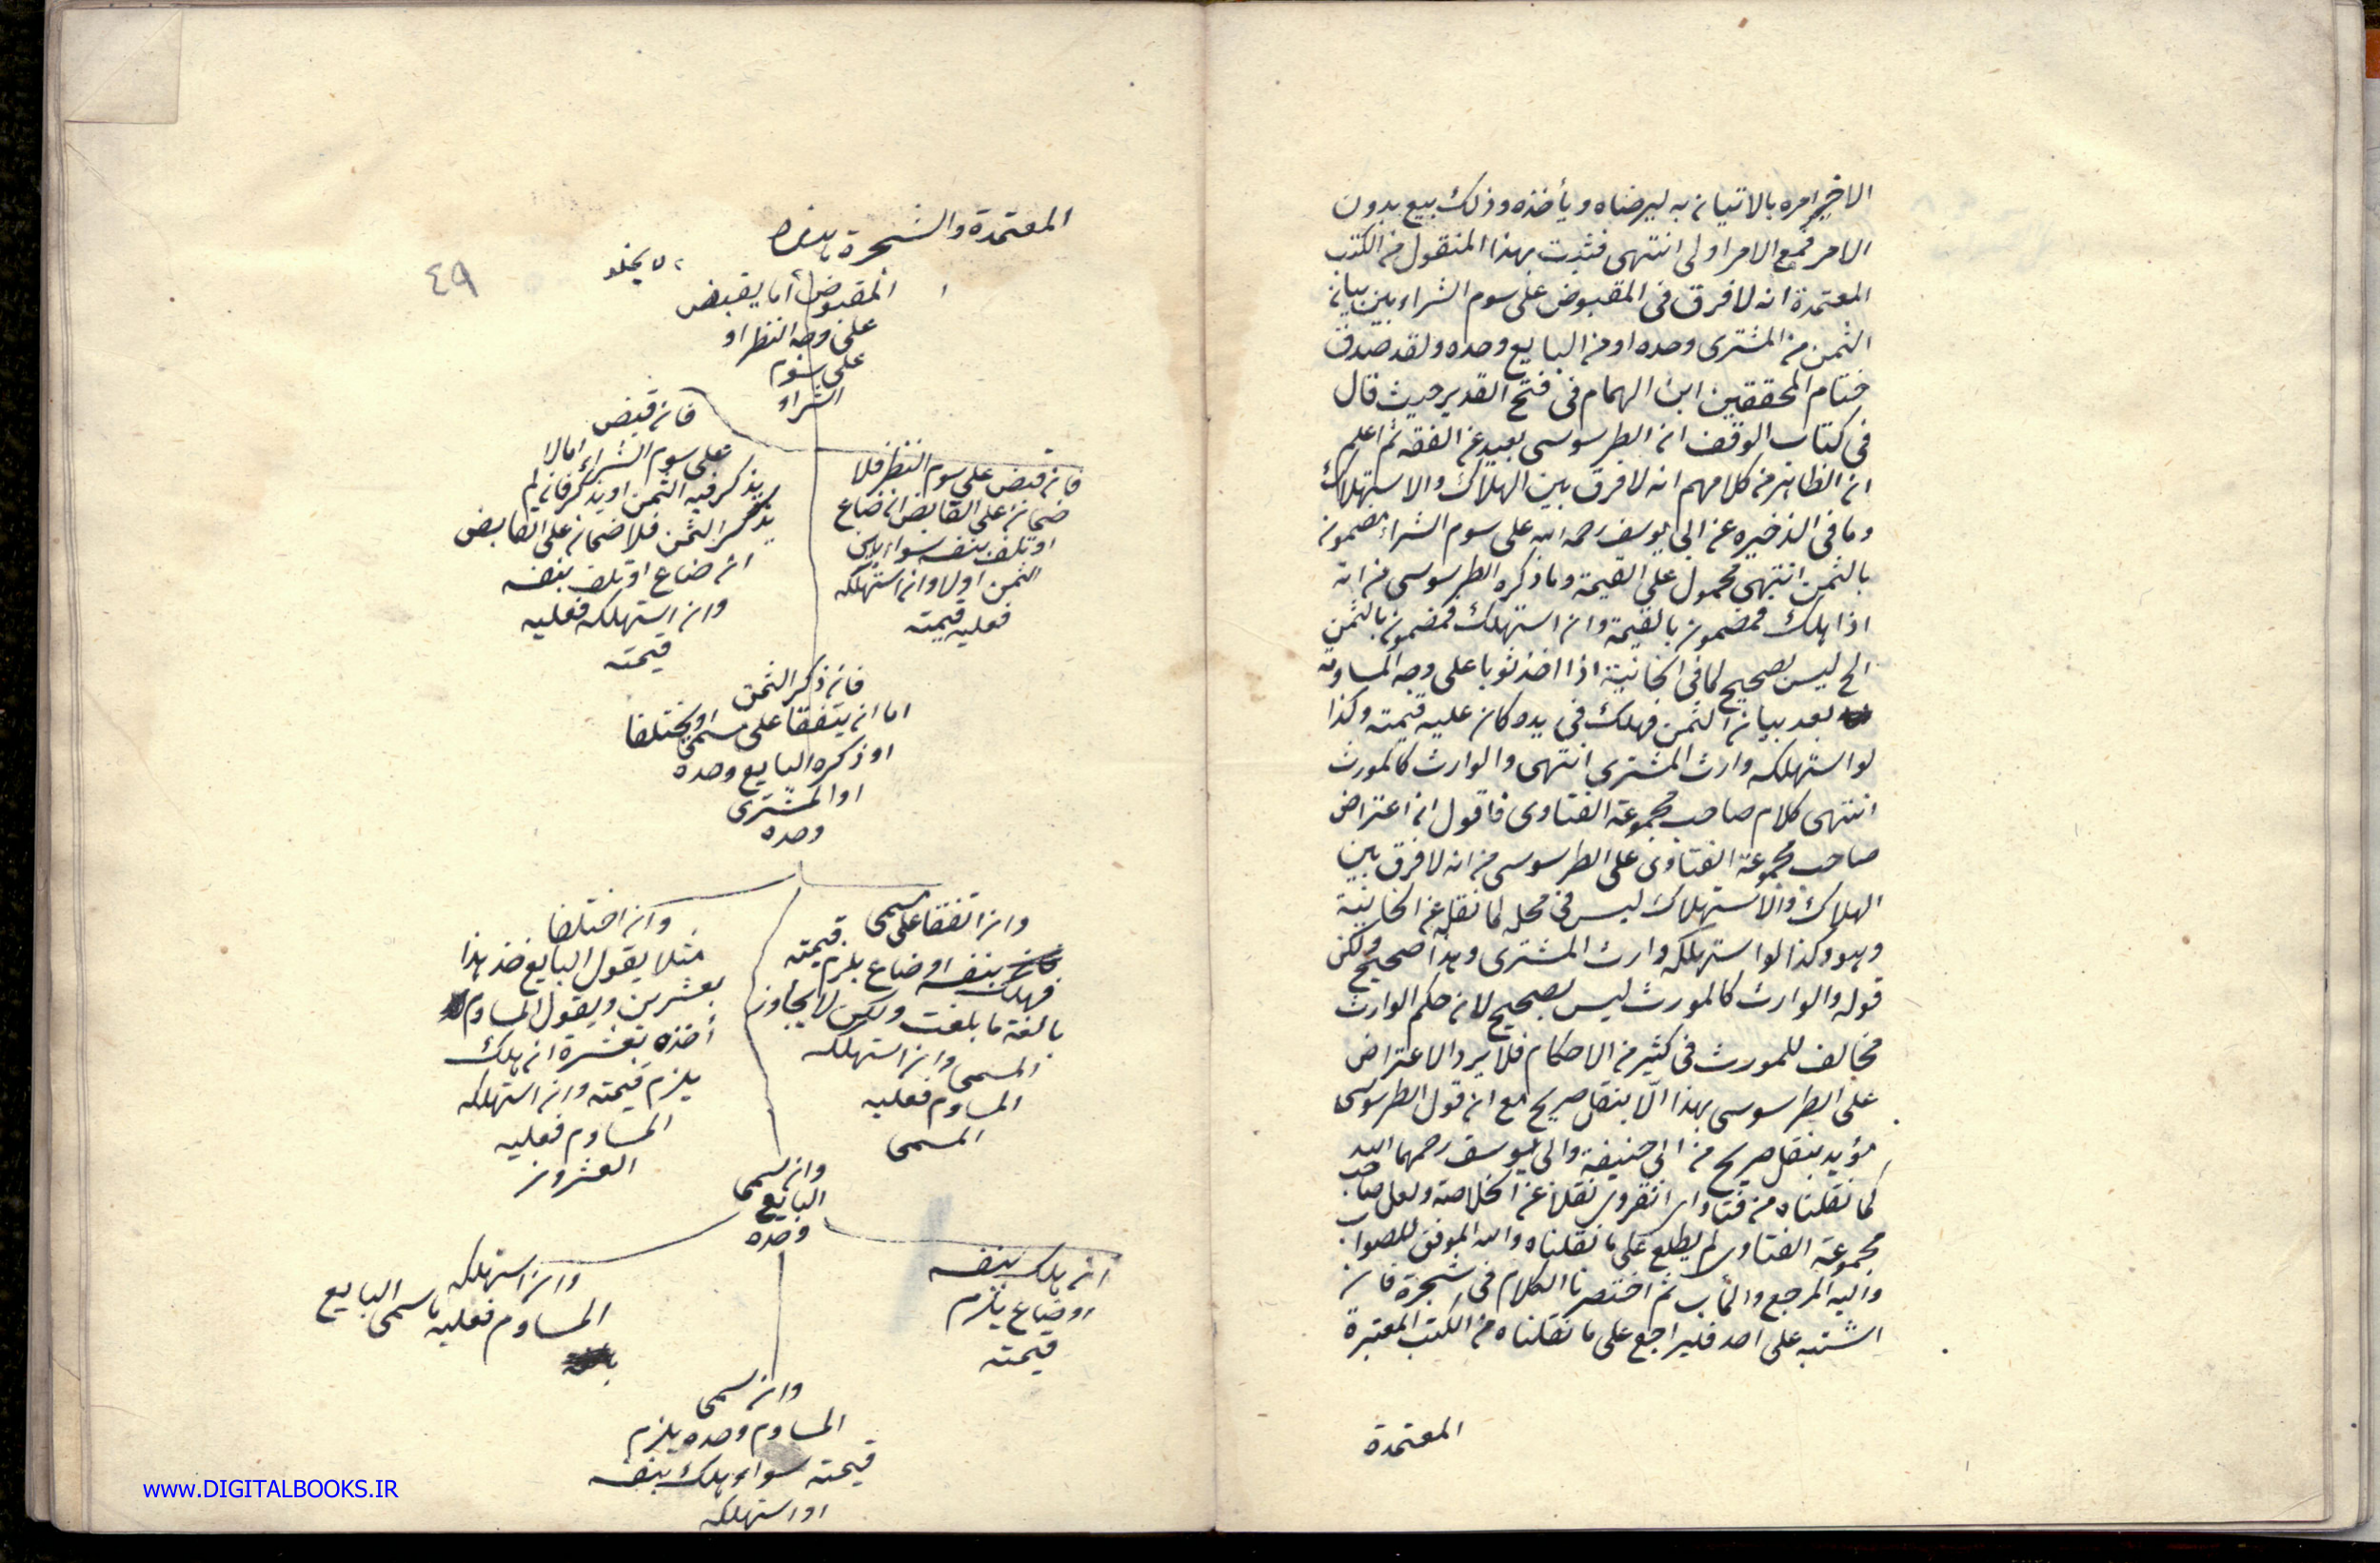 الاخير امره بالاتيان به ليرضاه ويأخذه وذلك بيع بدون
الامر فمع الامر اولى انتهى فثبت بهذا المنقول من الكتب
المعتمدة انه لا فرق فى المقبوض على سوم الشراء بين بيان
الثمن من المشترى وحده او من البايع وحده ولقد صدق
ختام المحققين ابن الهمام فى فتح القدير حيث قال
فى كتاب الوقف ان الطرسوسى بعيد عن الفقه ثم اعلم
ان الظاهر من كلامهم انه لا فرق بين الهلاك والاستهلاك
وما فى الذخيره عن ابى يوسف رحمه الله على سوم الشراء مضمون
بالثمن انتهى محمول على القيمة وما ذكره الطرسوسى من انه
اذا هلك فمضمون بالقيمة وان استهلك فمضمون بالثمن
الخ ليس بصحيح لما فى الخانية اذا اخذ ثوبا على وجه المساومة
بعد بيان الثمن فهلك فى يده كان عليه قيمته وكذا
لو استهلكه وارث المشترى انتهى والوارث كالمورث
انتهى كلام صاحب مجموعة الفتاوى فاقول ان اعتراض
صاحب مجموعة الفتاوى على الطرسوسى من انه لا فرق بين
الهلاك والاستهلاك ليس فى محله لما نقل عن الخانية
وهو وكذا لو استهلكه وارث المشترى وهذا صحيح ولكن
قوله والوارث كالمورث ليس بصحيح لان حكم الوارث
مخالف للمورث فى كثير من الاحكام فلا يرد الاعتراض
على الطرسوسى بهذا الّا بنقل صريح مع ان قول الطرسوسى
مؤيد بنقل صريح من ابى حنيفة وابى يوسف رحمهما الله
كما نقلناه من فتاواى انقروى نقلا عن الخلاصة ولعل صاحب
مجموعة الفتاوى لم يطلع على ما نقلناه والله الموفق للصواب
واليه المرجع والمآب ثم اختصرنا الكلام فى شجرة فان
اشتبه على احد فليراجع على ما نقلناه من الكتب المعتبرة
المعتمدة
المعتمدة والشجرة هذه
لا يخلو
٤٩
المقبوض أما يقبض
على وجه النظر او
على سوم
الشراء
فان قبض على سوم النظر فلا
ضمان على القابض ان ضاع
او تلف بنفسه سواء بين
الثمن اولا وان استهلكه
فعليه قيمته
فان قبض
على سوم الشراء اما لا
يذكر فيه الثمن او يذكر فان لم
يذكر الثمن فلا ضمان على القابض
ان ضاع او تلف بنفسه
وان استهلكه فعليه
قيمته
فان ذكر الثمن
اما ان يتفقا على مسمى او يختلفا
او ذكره البايع وحده
او المشترى
وحده
وان اتفقا على مسمى
فهلك بنفسه او ضاع يلزم قيمته
بالغة ما بلغت ولكن لا يجاوز
المسمى وان استهلكه
المساوم فعليه
المسمى
وان اختلفا
مثلا يقول البايع خذ هذا
بعشرين ويقول المساوم
أخذه بعشرة ان هلك
يلزم قيمته وان استهلكه
المساوم فعليه
العشرون
وان سمى
البايع
وحده
ان هلك بنفسه
او ضاع يلزم
قيمته
وان استهلكه
المساوم فعليه ما سمى البايع
وان سمى
المساوم وحده يلزم
قيمته سواء هلك بنفسه
او استهلكه
www.DIGITALBOOKS.IR